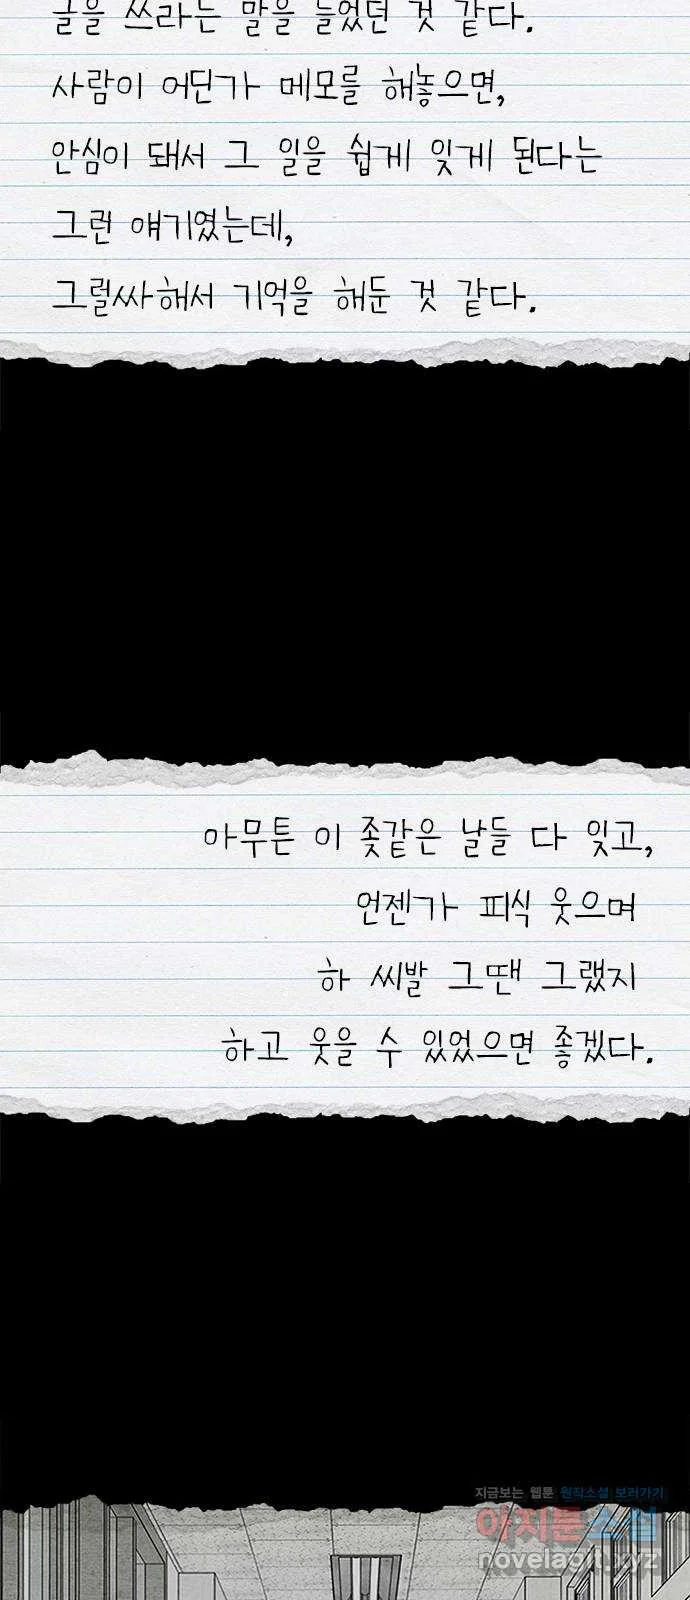 글을 쓰라는 말을 들었던 것 같다.
사람이 어딘가 메모를 해놓으면,
안심이 돼서 그 일을 쉽게 잊게 된다는
그런 얘기였는데,
그럴싸해서 기억을 해둔 것 같다.
아무튼 이 좆같은 날들 다 잊고,
언젠가 피식 웃으며
하 씨발 그땐 그랬지
하고 웃을 수 있었으면 좋겠다.
지금보는 웹툰 원작소설 보러가기
아지툰소설
novelagit.xyz